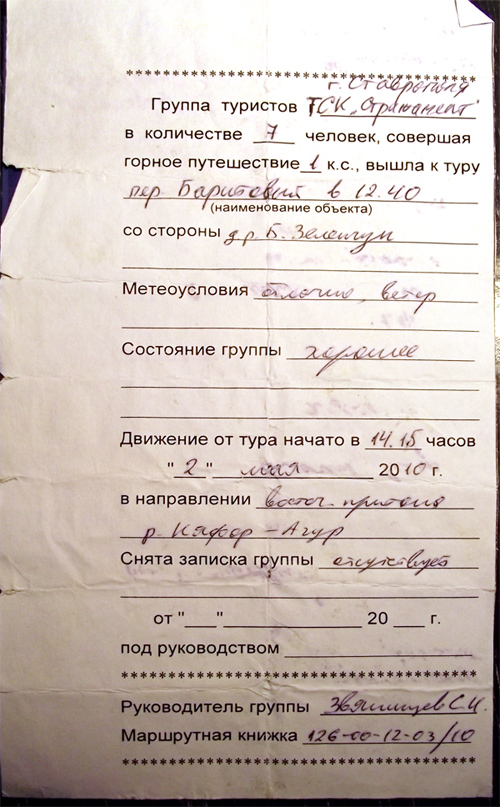 **********************************
г. Ставрополя
Группа туристов ТСК „Стрижамент"
в количестве 7 человек, совершая
горное путешествие 1 к.с., вышла к туру
пер. Баритовый в 12.40
(наименование объекта)
со стороны д.р. Б. Зеленчук
Метеоусловия облачно, ветер
Состояние группы хорошее
Движение от тура начато в 14.15 часов
"2" мая 2010 г.
в направлении восточ. притока
р. Кяфар-Агур
Снята записка группы отсутствует
от "___"____________ 20 ___ г.
под руководством
**********************************
Руководитель группы С.И.
Маршрутная книжка 126-00-12-03/10
**********************************